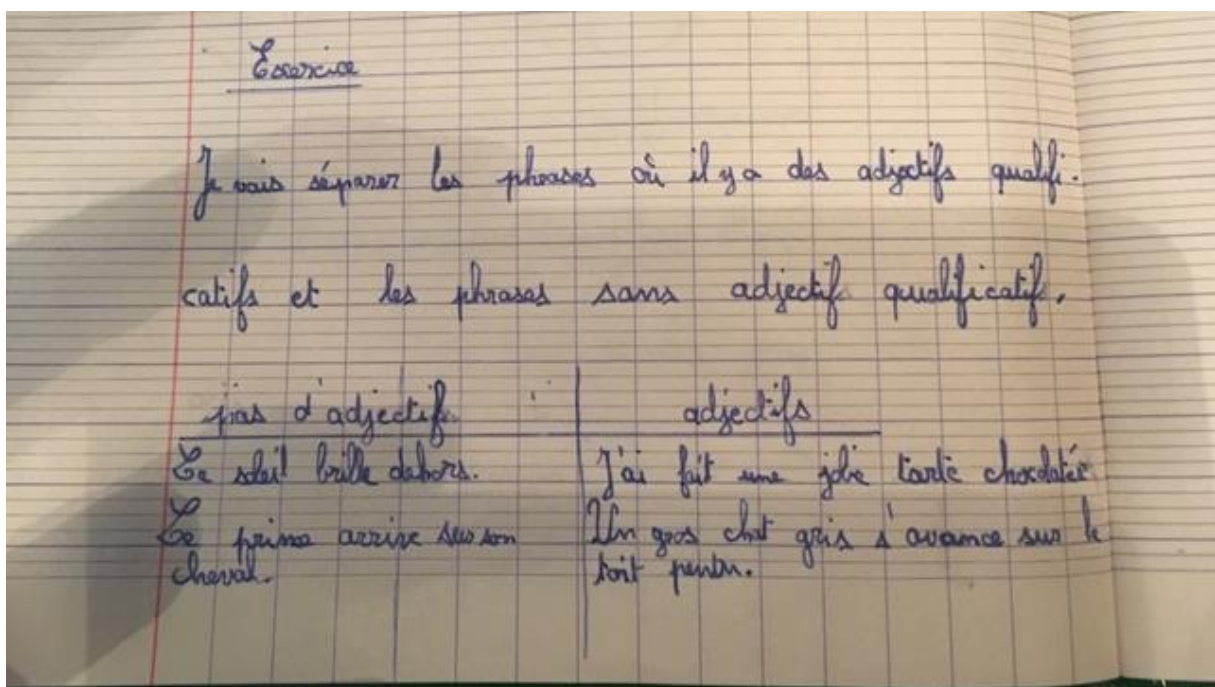 Exercice
Je vais séparer les phrases où il y a des adjectifs qualifi-
catifs et les phrases sans adjectif qualificatif.
pas d'adjectif adjectifs
Le soleil brille dehors. J'ai fait une jolie tarte chocolatée
Le prince arrive sur son Un gros chat gris s'avance sur le
cheval. toit pentu.